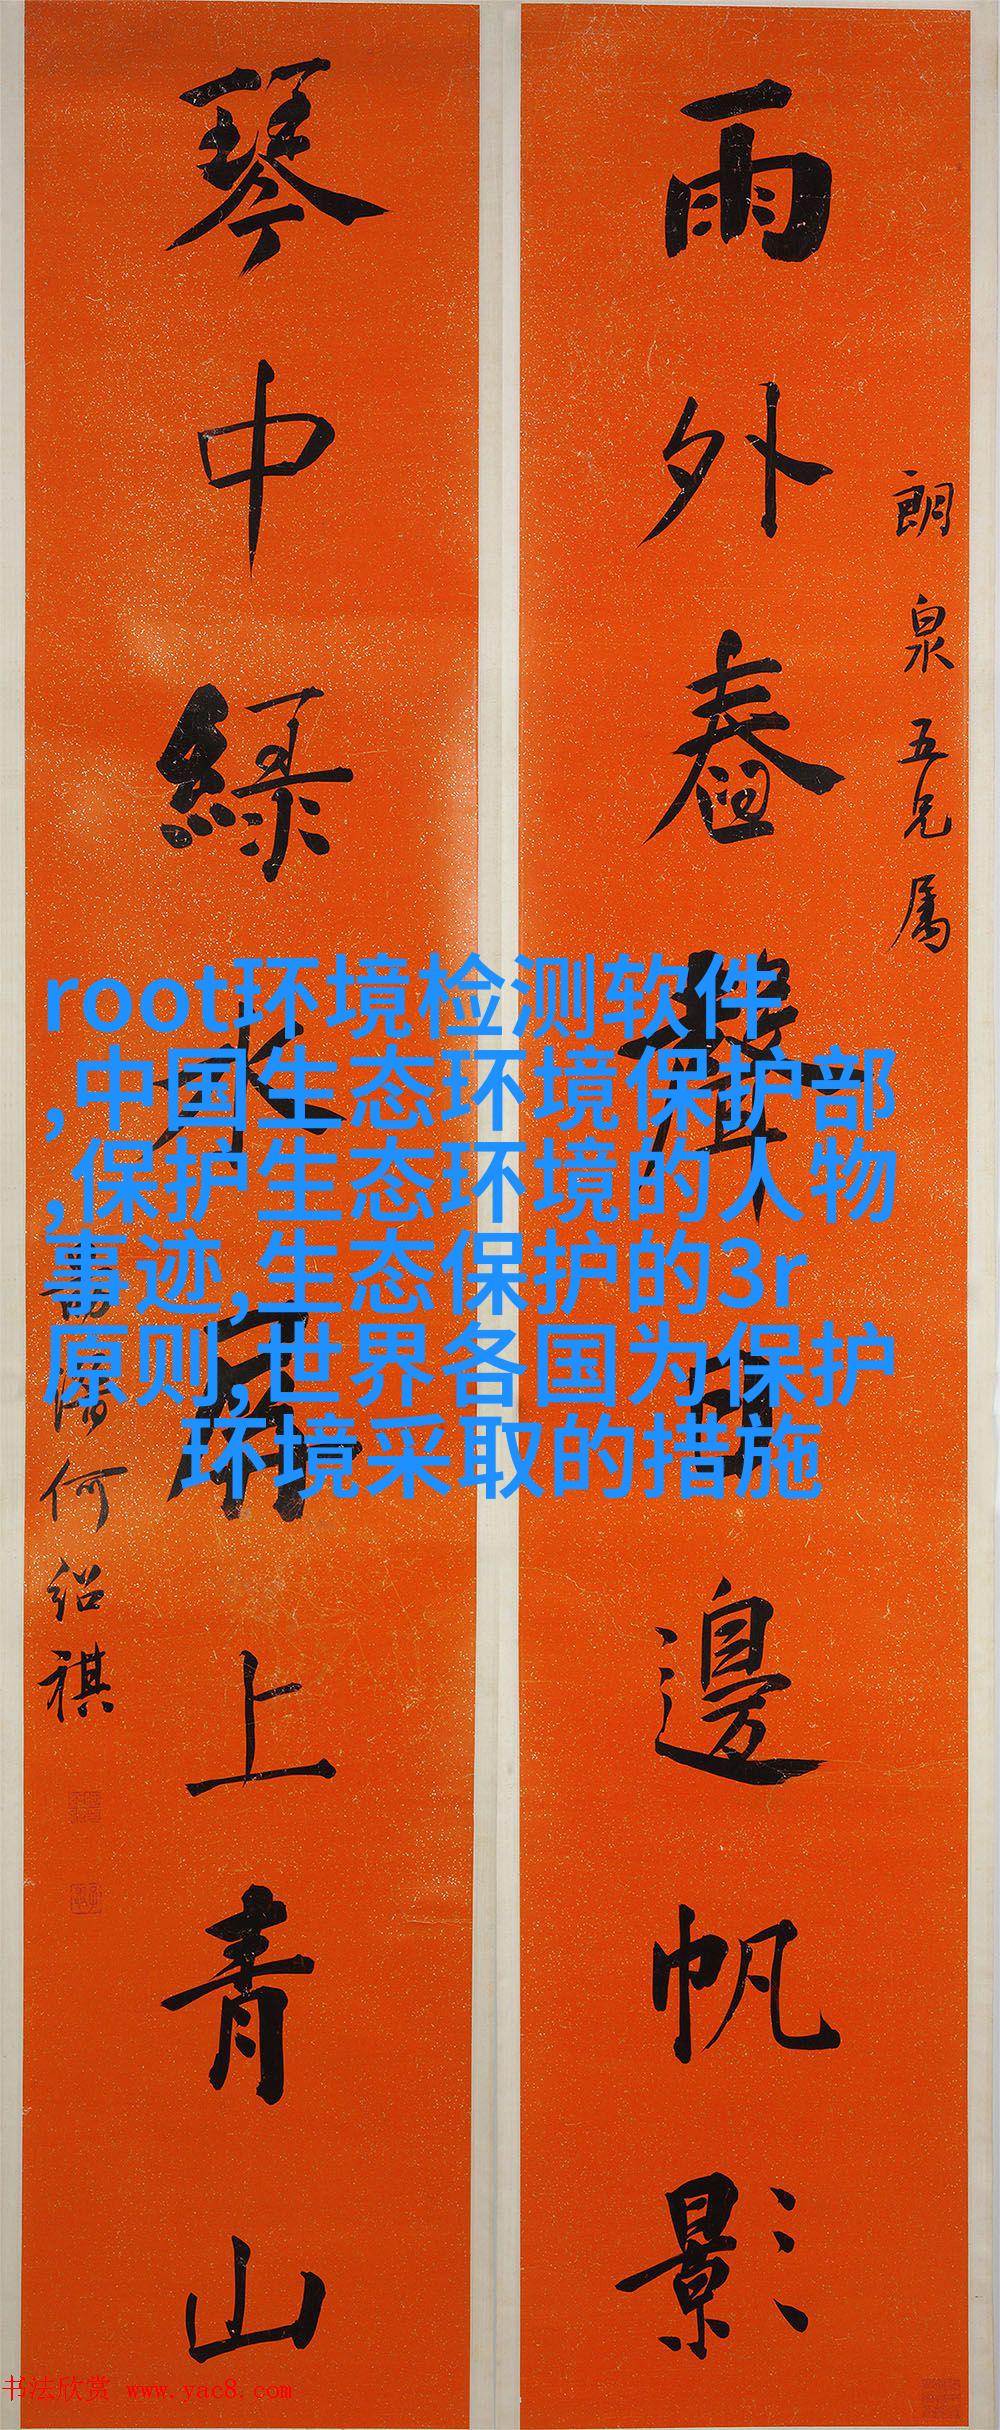 朗泉五兄属
雨外舂聲
邊帆影
琴中綠水
上青山
何绍祺
root环境检测软件
,中国生态环境保护部
,保护生态环境的人物
事迹,生态保护的3r
原则,世界各国为保护
环境采取的措施
书法欣赏 www.yac8.com